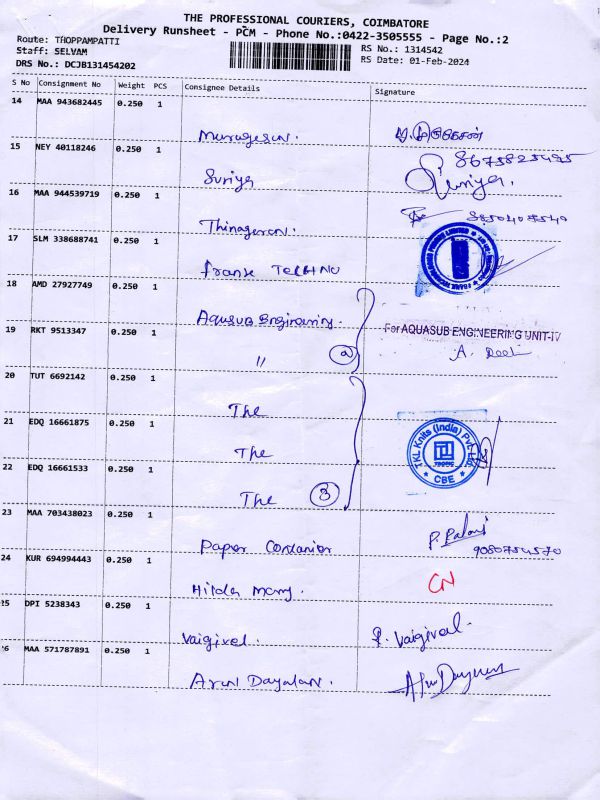 THE PROFESSIONAL COURIERS, COIMBATORE
Delivery Runsheet - PCM - Phone No.:0422-3505555 - Page No.:2
Route: THOPPAMPATTI
RS No.: 1314542
Staff: SELVAM
RS Date: 01-Feb-2024
DRS No.: DCJB131454202
S No Consignment No Weight PCS Consignee Details Signature
14 MAA 943682445 0.250 1
Murugesan.
15 NEY 40118246 0.250 1
8675825495
Suriya Suriya.
16 MAA 944539719 0.250 1
Thinagaran.
17 SLM 338688741 0.250 1
franke TECHNO
18 AMD 27927749 0.250 1
Aquasub Engineering.
For AQUASUB ENGINEERING UNIT-IV
19 RKT 9513347 0.250 1
"
20 TUT 6692142 0.250 1
The
21 EDQ 16661875 0.250 1
The
TKL Knits (India) Pvt. Ltd.
CBE
22 EDQ 16661533 0.250 1
The 3
23 MAA 703438023 0.250 1
Paper Contanior P. Palani
9080754570
24 KUR 694994443 0.250 1
Hilda mary. CN
25 DPI 5238343 0.250 1
Vaigivel. P. Vaigivel.
26 MAA 571787891 0.250 1
Arun Dayalan.